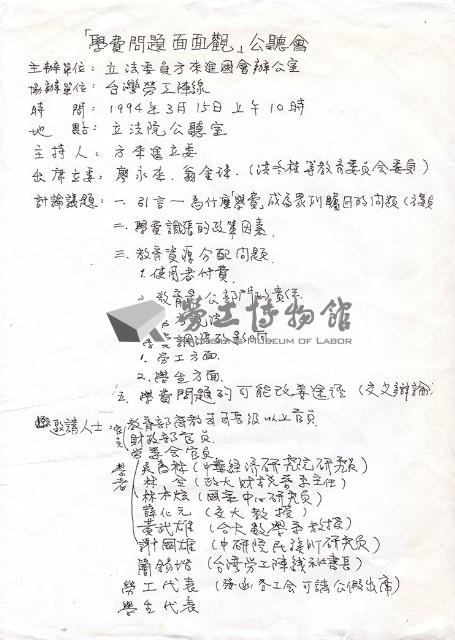 「學費問題面面觀」公聽會
主辦單位：立法委員方來進國會辦公室
協辦單位：台灣勞工陣線
時間：1994年3月15日上午10時
地點：立法院公聽室
主持人：方來進立委
出席立委：廖永來、翁金珠、(等教育委員會委員)
討論議題：一.引言—為什麼「學費」成為眾所矚目的問題
二.學費調漲的政策因素.
三.教育資源分配問題.
1.使用者付費.
2.教育是公部門的責任.
勞工博物館
KAOHSIUNG MUSEUM OF LABOR
1.勞工方面.
2.學生方面.
五.學費問題的可能改善途徑(交叉辯論)
邀請人士：官員 教育部高教司司長級以上官員
財政部官員
勞委會官員
學者 吳惠林(中華經濟研究院研究員)
林全(政大財稅系系主任)
薛化元(文大教授)
黃武雄(台大數學系教授)
謝國雄(中研院民族所研究員)
簡錫堦(台灣勞工陣線秘書長)
勞工代表(發函各工會可請公假出席)
學生代表